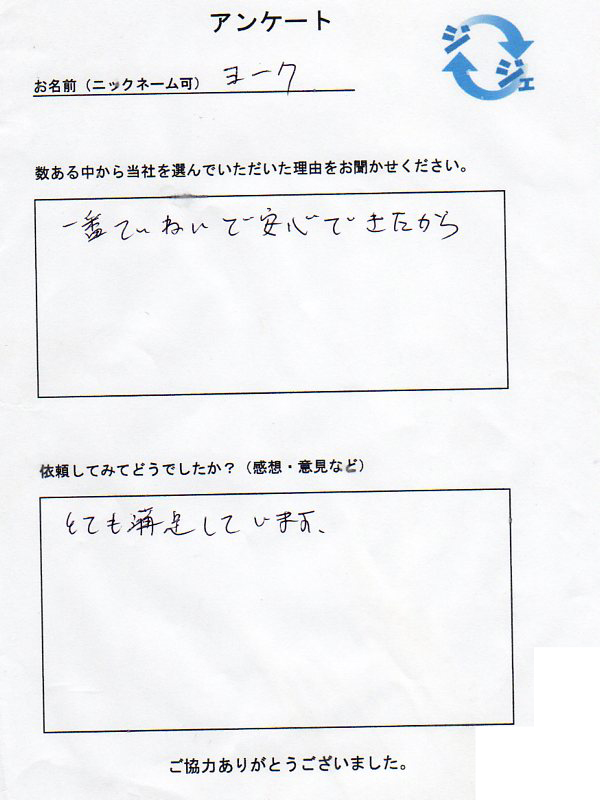 アンケート
ジジェ
お名前（ニックネーム可） ヨーク
数ある中から当社を選んでいただいた理由をお聞かせください。
一番ていねいで安心できたから
依頼してみてどうでしたか？（感想・意見など）
とても満足しています、
ご協力ありがとうございました。